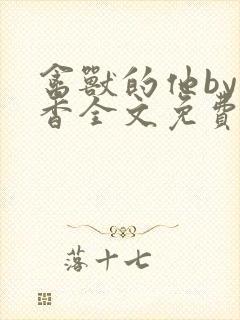 禽獸的他by
香全文免費
落十七